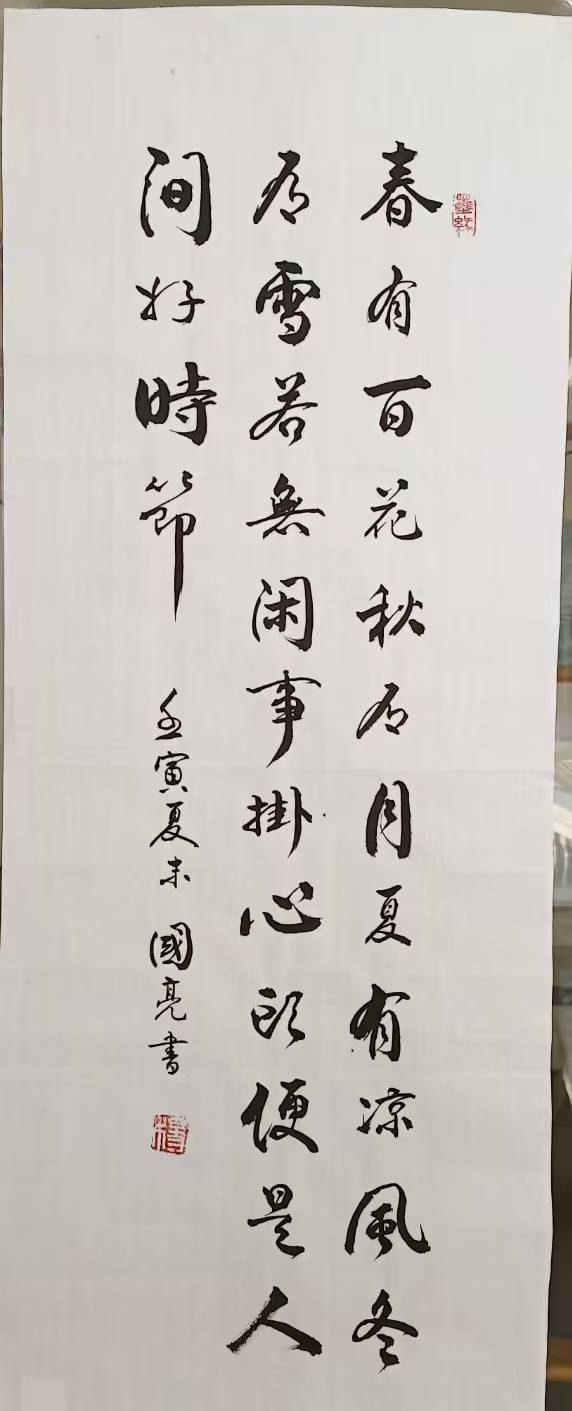 春有百花秋有月夏有凉風冬
有雪若無闲事掛心頭便是人
间好時節
壬寅夏末 國亮書
墨缘